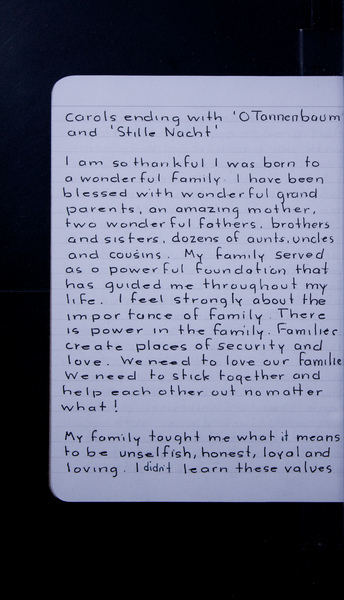 Carols ending with 'O Tannenbaum'
and 'Stille Nacht'
I am so thankful I was born to
a wonderful family. I have been
blessed with wonderful grand
parents, an amazing mother,
two wonderful fathers, brothers
and sisters, dozens of aunts, uncles
and cousins. My family served
as a powerful foundation that
has guided me throughout my
life. I feel strongly about the
importance of family. There
is power in the family. Families
create places of security and
love. We need to love our familie
We need to stick together and
help each other out no matter
what!
My family taught me what it means
to be unselfish, honest, loyal and
loving. I didn't learn these values